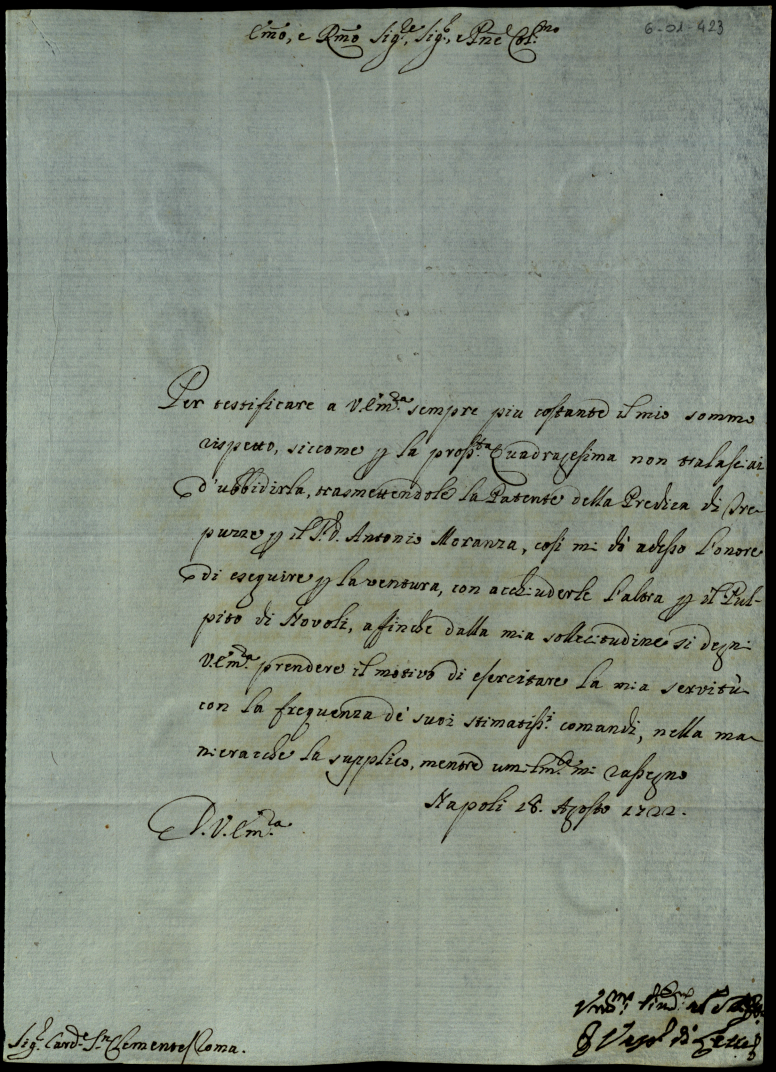 Em̃o, e Rm̃o Sig.re, Sig.r, e Pñe Col.mo
6-01-423
Per testificare a V. Em.za sempre piu costante il mio sommo
rispetto, siccome p la pross.ta Quadragesima non tralasciai
d'ubbidirla, trasmettendole la Patente della Predica di Tre-
puzze p il P.D. Antonio Moranza, così mi dò adesso l'onore
di eseguire p la ventura, con acchiuderle l'altra p il Pul-
pito di Novoli, affinche dalla mia sollecitudine si degni
V. Em.za prendere il motivo di esercitare la mia servitù
con la frequenza de' suoi stimatiss.i comandi, nella ma-
nieracche la supplico, mentre umilm.te mi rassegno
Napoli 18. Agosto 1722.
D. V. Em.za
Sig.r Card.e S.n Clemente Roma.